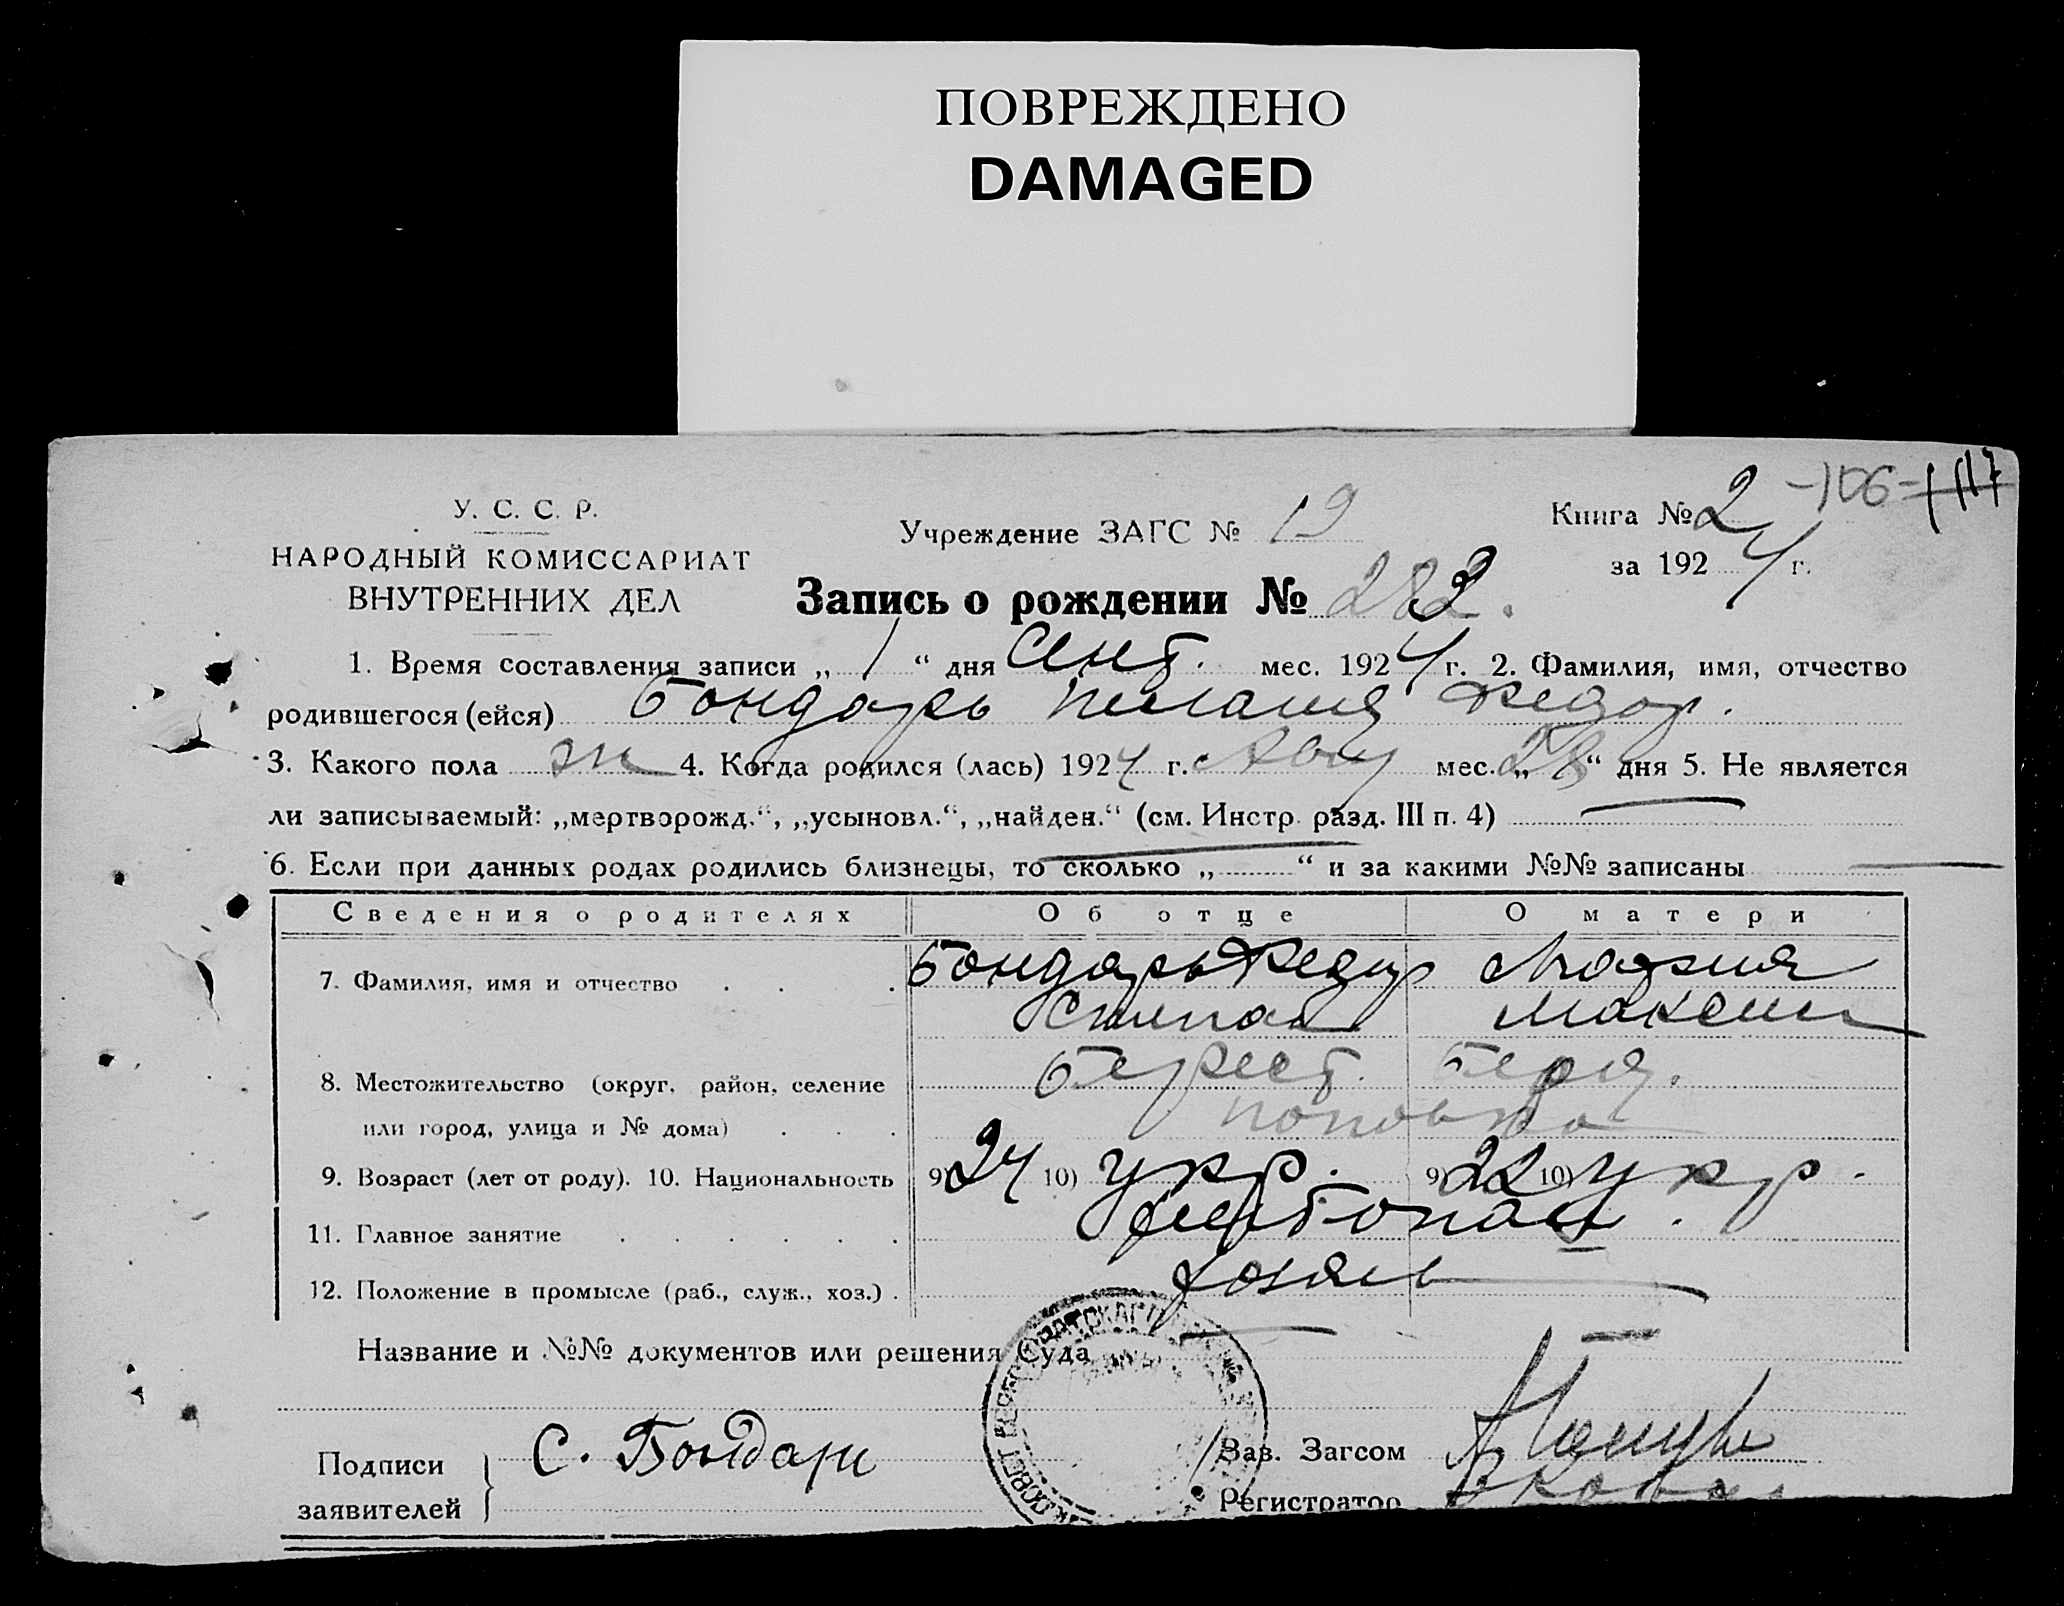 ПОВРЕЖДЕНО
DAMAGED
У. С. С. Р.
НАРОДНЫЙ КОМИССАРИАТ
ВНУТРЕННИХ ДЕЛ
Учреждение ЗАГС № 19
Книга № 2
за 1924 г.
Запись о рождении № 282.
1. Время составления записи „ 1 “ дня Сент. мес. 1924 г. 2. Фамилия, имя, отчество
родившегося (ейся) Бондарь Пелагия Федор.
3. Какого пола ж 4. Когда родился (лась) 1924 г. Авг мес. „28“ дня 5. Не является
ли записываемый: „мертворожд.“, „усыновл.“, „найден.“ (см. Инстр. разд. III п. 4)
6. Если при данных родах родились близнецы, то сколько „ “ и за какими №№ записаны
Сведения о родителях Об отце О матери
7. Фамилия, имя и отчество Бондарь Федор Мария
Степан Максим
8. Местожительство (округ, район, селение Берест.
или город, улица и № дома) Поповка
9. Возраст (лет от роду). 10. Национальность 9) 24 10) укр. 9) 22 10) укр.
11. Главное занятие хлебопаш.
12. Положение в промысле (раб., служ., хоз.) хозяин
Название и №№ документов или решения Суда
Подписи
заявителей
С. Бондарь
Зав. Загсом
Регистратор